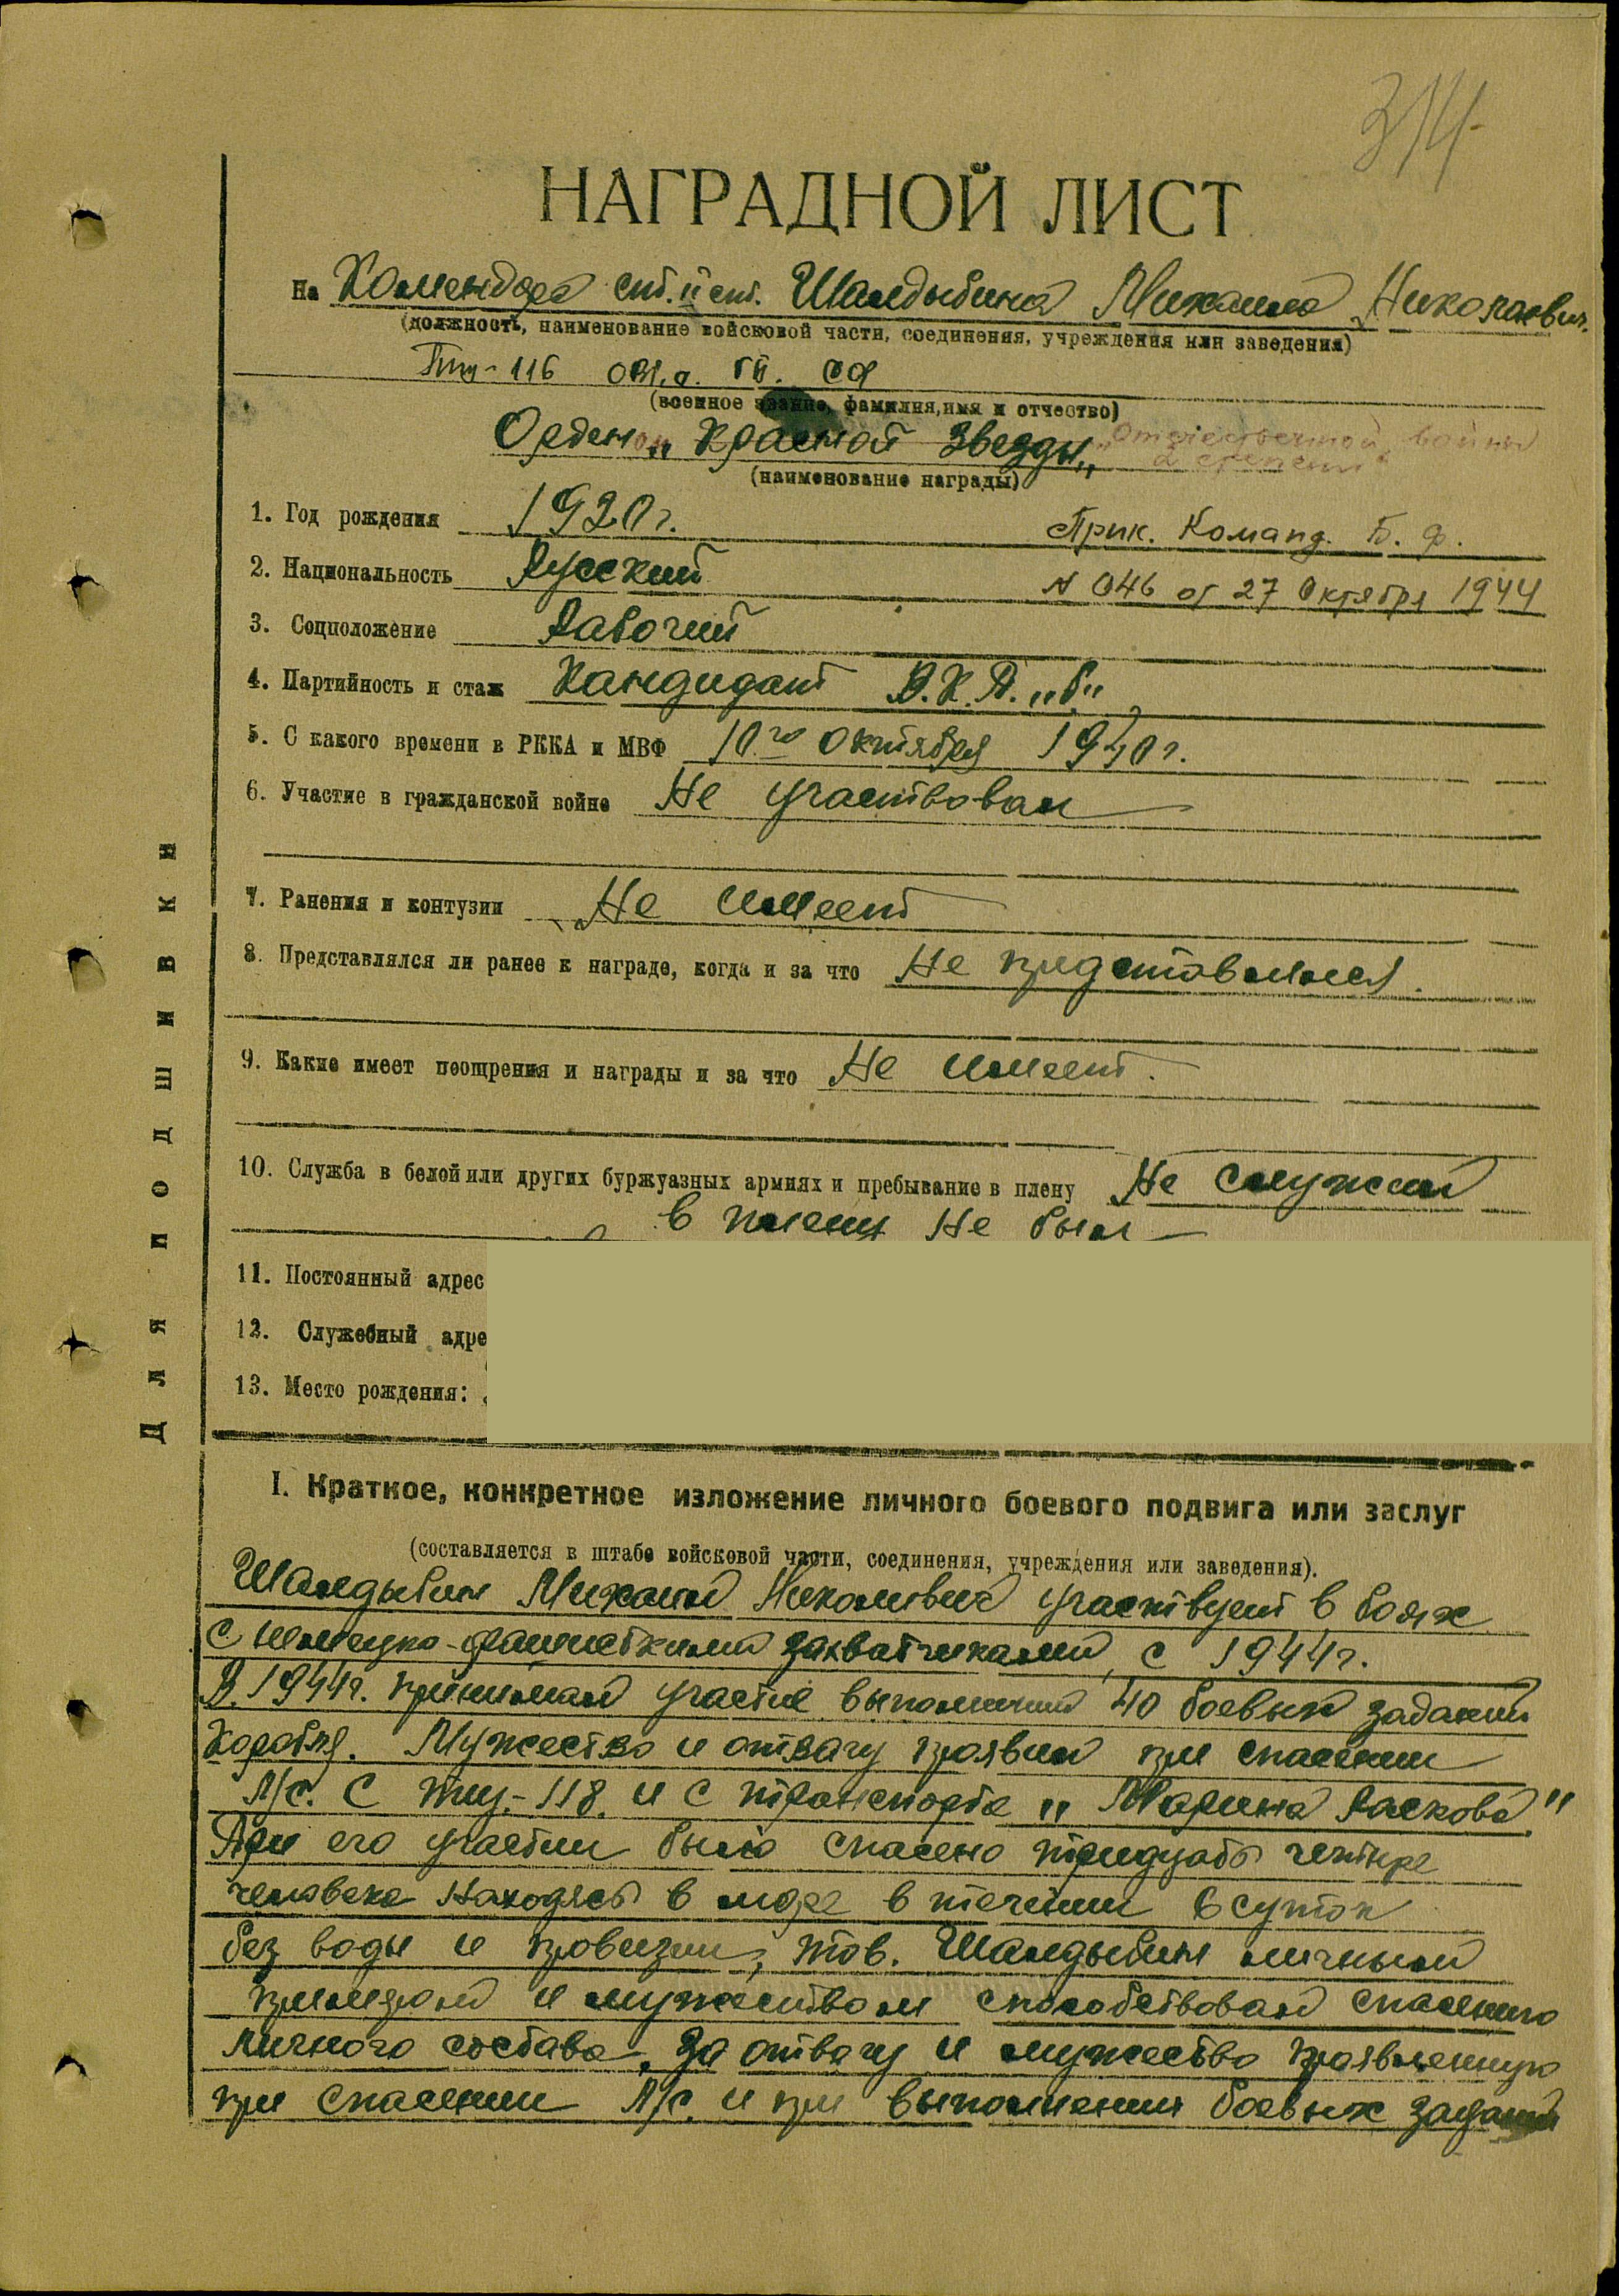 314
НАГРАДНОЙ ЛИСТ
на Комендора ст. II ст. Шалдыбина Михаила Николаевич.
(должность, наименование войсковой части, соединения, учреждения или заведения)
Тщ-116
(военное звание, фамилия, имя и отчество)
Орденом „Красной Звезды„ „Отечественной войны
2 степени"
(наименование награды)
1. Год рождения 1920 г.
Прик. Команд. Б. Ф.
2. Национальность Русский
N 046 от 27 Октября 1944
3. Соцположение Рабочий
4. Партийность и стаж Кандидат В.К.П. „б"
5. С какого времени в РККА и МВФ 10го октября 1940 г.
6. Участие в гражданской войне Не участвовал
7. Ранения и контузии Не имеет
8. Представлялся ли ранее к награде, когда и за что Не представлялся.
9. Какие имеет поощрения и награды и за что Не имеет.
10. Служба в белой или других буржуазных армиях и пребывание в плену Не служил
в плену не был
11. Постоянный адрес
12. Служебный адре
13. Место рождения:
Для подшивки
I. Краткое, конкретное изложение личного боевого подвига или заслуг
(составляется в штабе войсковой части, соединения, учреждения или заведения).
Шалдыбин Михаил Николаевич участвует в боях
с немецко-фашисткими захватчиками, с 1944 г.
В 1944 г. принимал участие выполнении 40 боевых заданий
Корабля. Мужество и отвагу проявил при спасении
Л/с. с тщ.-118. и с транспорта „Марина Раскова"
При его участии было спасено тридцать четыре
человека находясь в море в течении 6 суток
без воды и провизии, тов. Шалдыбин личным
примером и мужеством способствовал спасению
личного состава. За отвагу и мужество проявленную
при спасении Л/с. и при выполнении боевых заданий